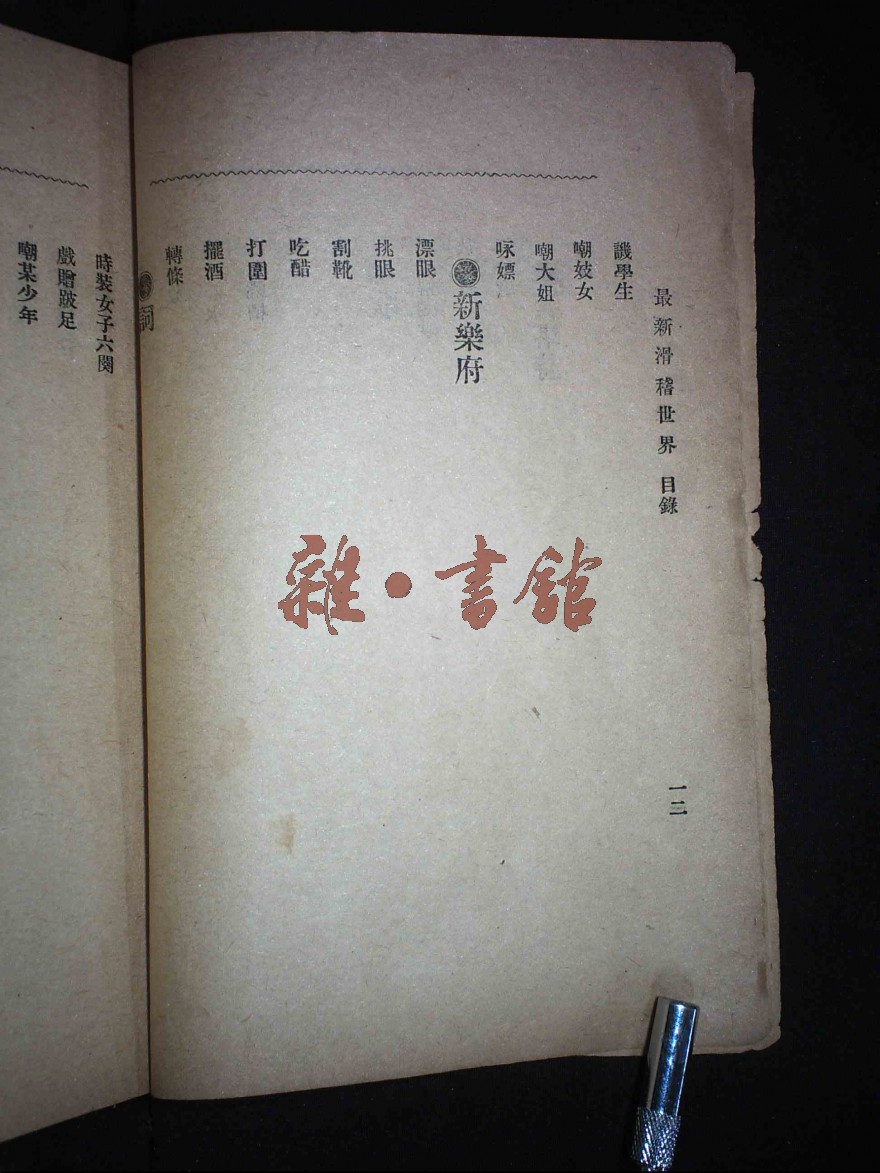 最新滑稽世界 目錄
一二
譏學生
嘲妓女
嘲大姐
咏嫖
新樂府
漂眼
挑眼
割靴
吃醋
打圍
擺酒
轉條
詞
時裝女子六闋
戲贈跛足
嘲某少年
雜·書館